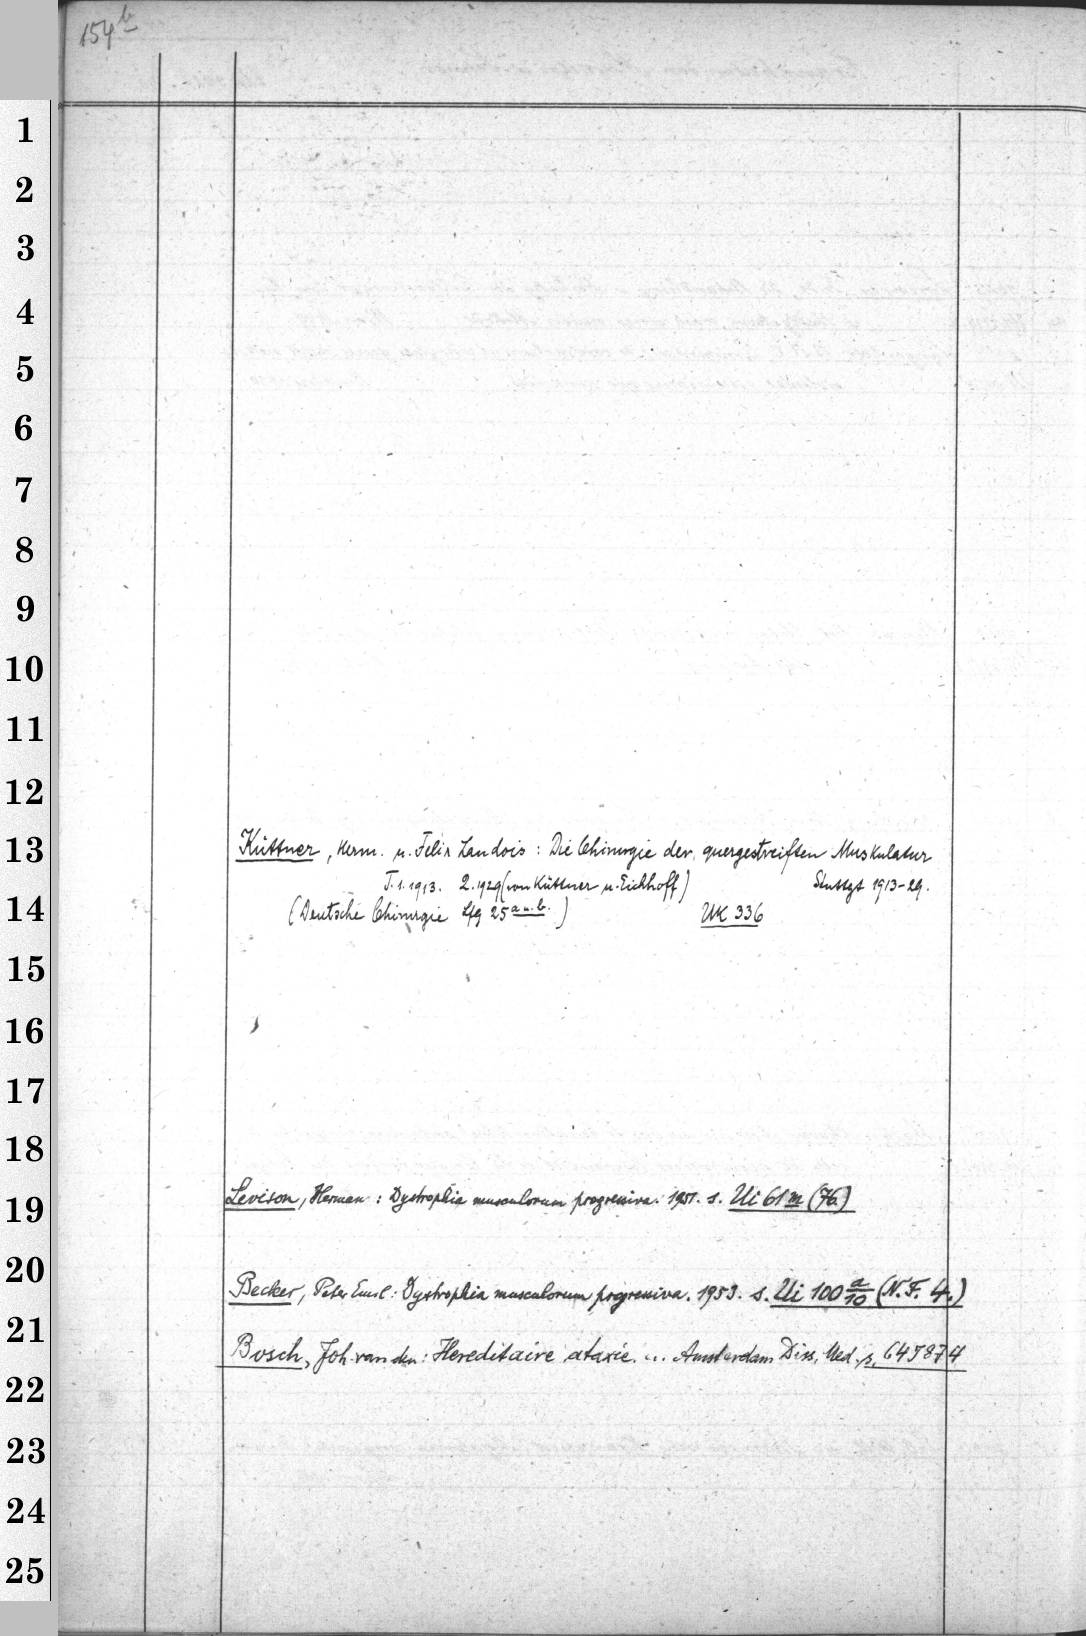 154 b
1
2
3
4
5
6
7
8
9
10
11
12
13
Küttner, Herm. u. Felix Landois: Die Chirurgie der quergestreiften Muskulatur
T. 1. 1913. 2. 1929 (von Küttner u. Eichhoff) Stuttgt 1913-29.
14
(Deutsche Chirurgie Lfg 25 a u. b.) UK 336
15
16
17
18
19
Levison, Herman: Dystrophia musculorum progressiva. 1951. s. Ui 61 m (76)
20
Becker, Peter Emil: Dystrophia musculorum progressiva. 1953. s. Ui 100 a/10 (N. F. 4.)
21
Bosch, Joh. van den: Hereditaire ataxie. ... Amsterdam Diss. Med. s. 645874
22
23
24
25